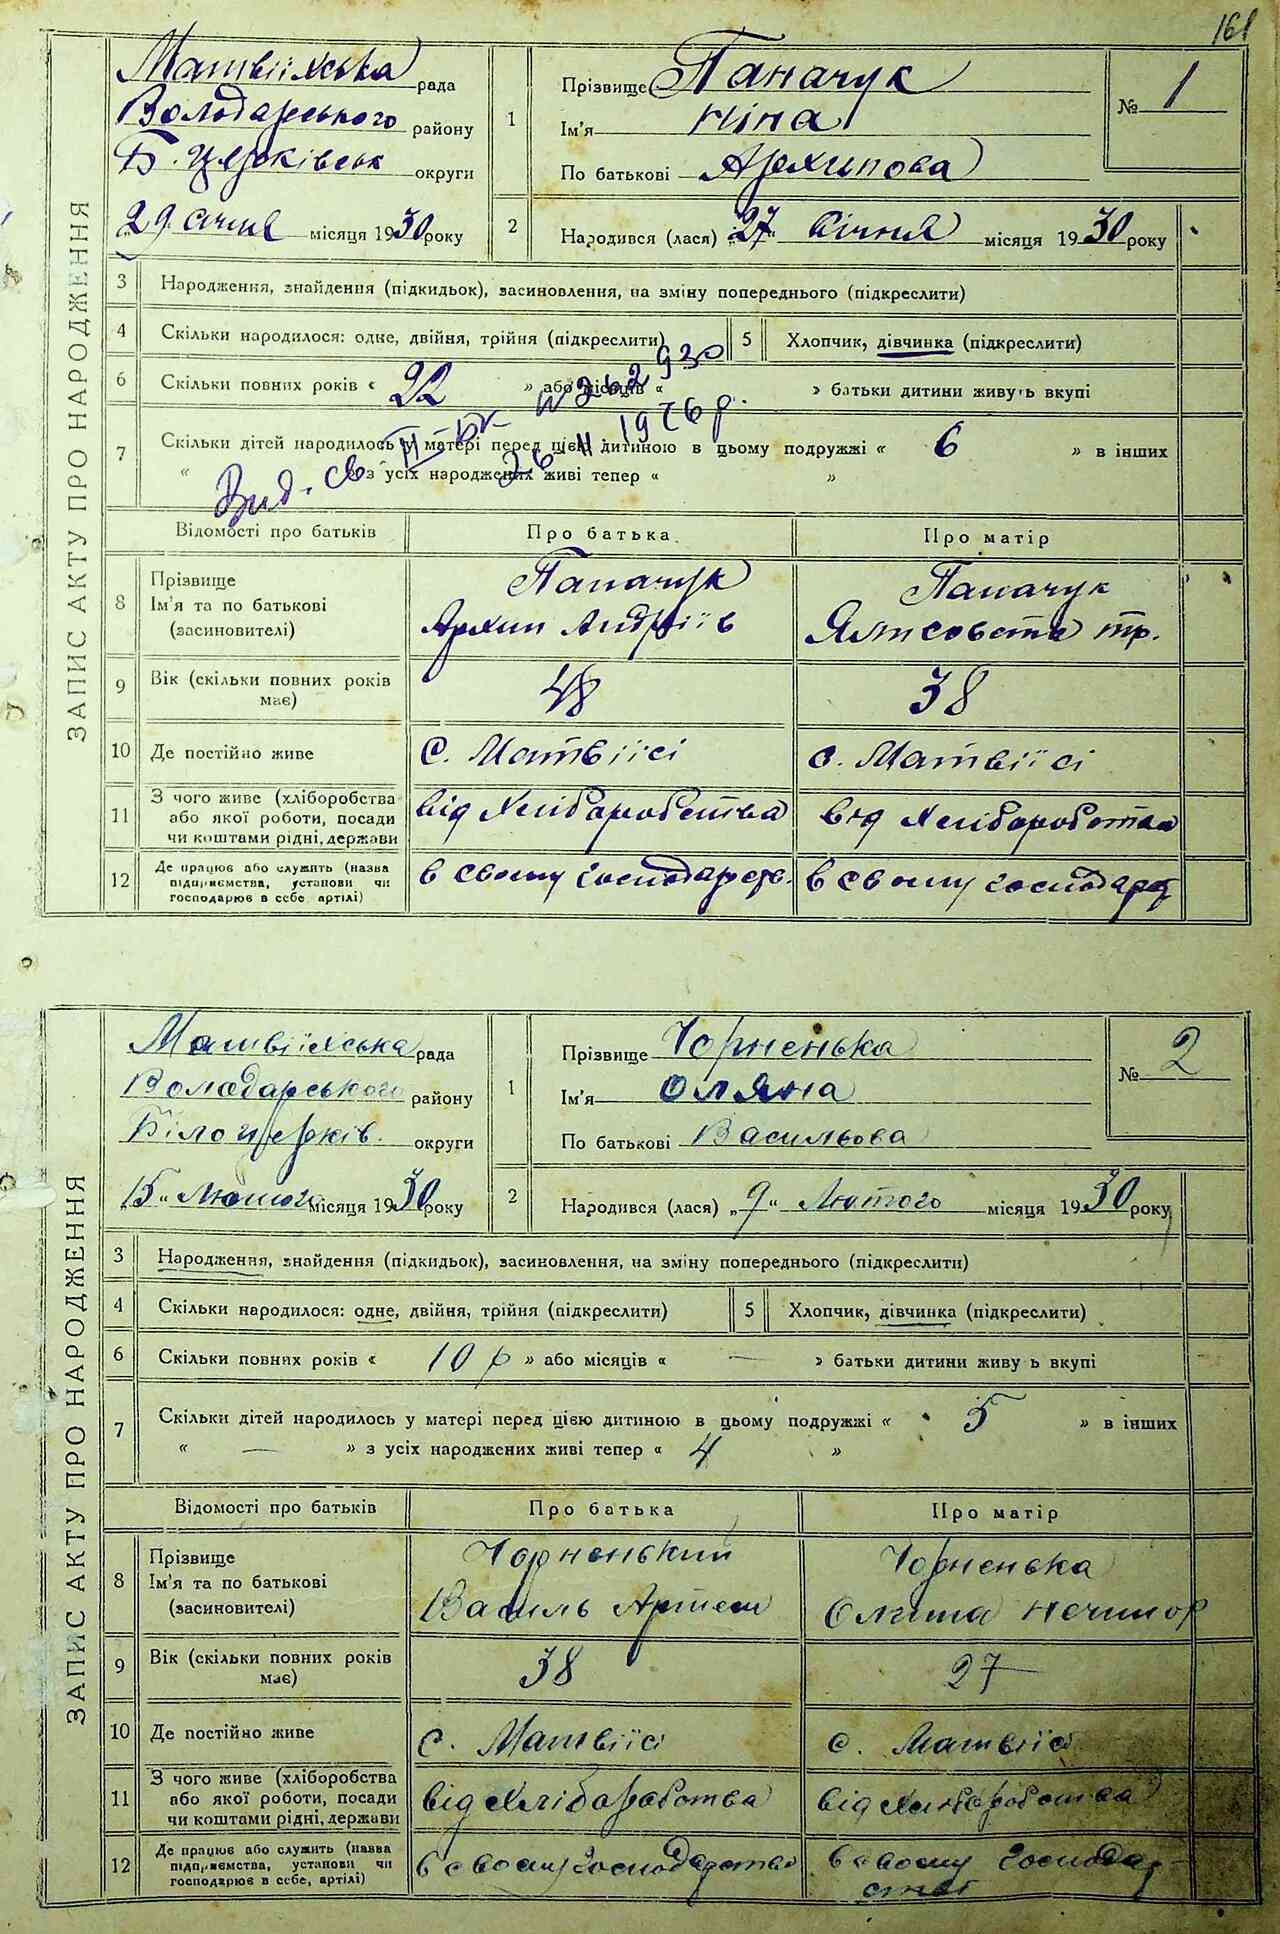 161
ЗАПИС АКТУ ПРО НАРОДЖЕННЯ
Матвіїхська рада
Володарського району
Б. Церківськ округи
„29 січня місяця 1930 року
1 Прізвище Паначук
Ім'я Ніна
По батькові Архипова
№ 1
2 Народився (лася) „27“ Січня місяця 1930 року
3 Народження, знайдення (підкидьок), засиновлення, на зміну попереднього (підкреслити)
4 Скільки народилося: одне, двійня, трійня (підкреслити) 5 Хлопчик, дівчинка (підкреслити)
6 Скільки повних років « 22 » або місяців « » батьки дитини живуть вкупі
7 Скільки дітей народилось у матері перед цією дитиною в цьому подружжі « 6 » в інших
« » з усіх народжених живі тепер « »
Вид. св II-БК № 262930
26 II 1976 р.
Відомості про батьків Про батька Про матір
8 Прізвище Паначук Паначук
Ім'я та по батькові Архип Андріїв Ялисовета Тр.
(засиновителі)
9 Вік (скільки повних років має) 48 38
10 Де постійно живе С. Матвіїсі с. Матвіїсі
11 З чого живе (хліборобства
або якої роботи, посади від хліборобства від хліборобства
чи коштами рідні, держави
12 Де працює або служить (назва
підприємства, установи чи в своему господарств. в своему господарст
господарює в себе артілі)
ЗАПИС АКТУ ПРО НАРОДЖЕННЯ
Матвіїхська рада
Володарського району
Білоцерків. округи
15 „ Лютого місяця 1930 року
1 Прізвище Чорненька
Ім'я Оляна
По батькові Васильова
№ 2
2 Народився (лася) „9“ Лютого місяця 1930 року
3 Народження, знайдення (підкидьок), засиновлення, на зміну попереднього (підкреслити)
4 Скільки народилося: одне, двійня, трійня (підкреслити) 5 Хлопчик, дівчинка (підкреслити)
6 Скільки повних років « 10 р » або місяців « — » батьки дитини живу ь вкупі
7 Скільки дітей народилось у матері перед цією дитиною в цьому подружжі « 5 » в інших
« — » з усіх народжених живі тепер « 4 »
Відомості про батьків Про батька Про матір
8 Прізвище Чорненький Чорненька
Ім'я та по батькові Василь Артем Олита Нечипор
(засиновителі)
9 Вік (скільки повних років має) 38 27
10 Де постійно живе с. Матвіїсі с. Матвіїсі
11 З чого живе (хліборобства
або якої роботи, посади від хліборобства від хліборобства
чи коштами рідні, держави
12 Де працює або служить (назва
підприємства, установи чи в своему господарстві в своему господар
господарює в себе, артілі) стві